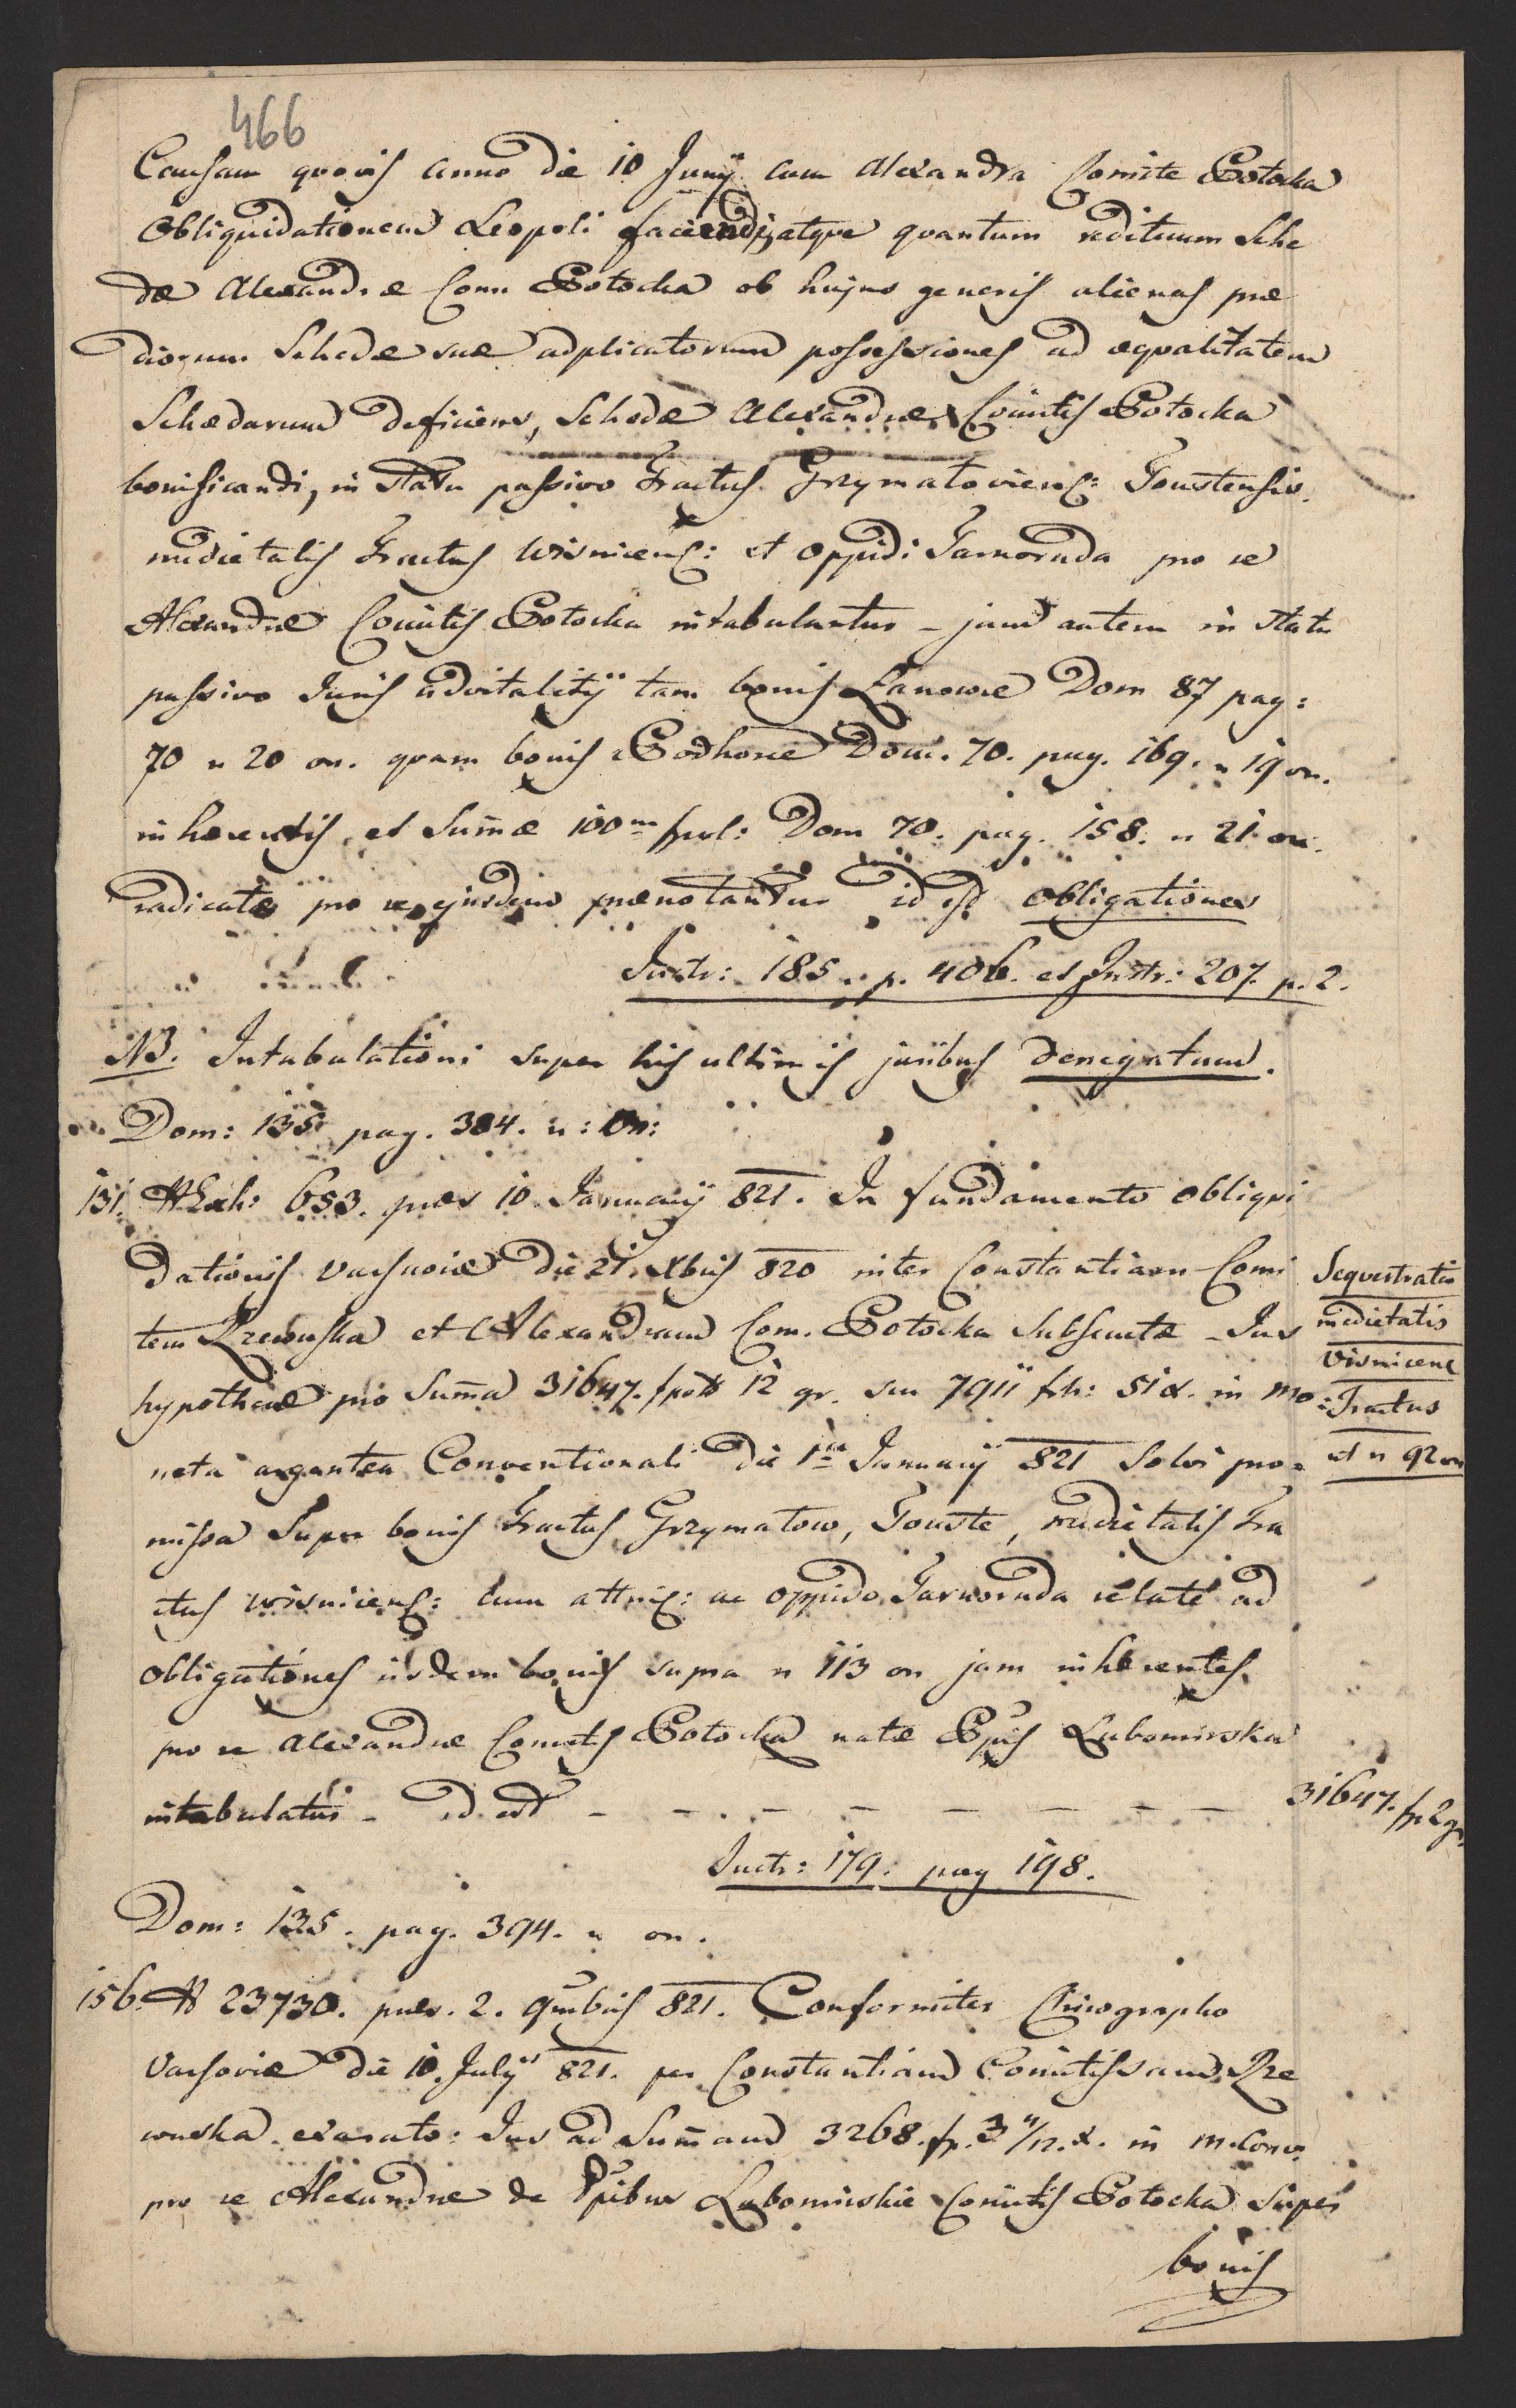 466
Causam quovis anno die 10 Junij cum Alexandra Comite Potocka
Obliquidationem Leopoli faciendi, atque quantum redituum Sche
dæ Alexandræ Com Potocka ob hujus generis alienas præ
diorum Schedæ suæ adplicatorum possessiones ad æqualitatem
Schedarum deficiens, Schedæ Alexandræ Comitis Potocka
bonificandi, in statu passivo Tractus Grzymałoviens: Toustensis
medietatis Tractus Wisniciens: et Oppidi Tarnoruda pro re
Alexandræ Comitis Potocka intabulantur – jam autem in statu
passivo Juris advitalitij tam bonis Łanowce Dom 87 pag:
70 n 20 on. quam bonis Podhorce Dom. 70. pag. 169. n 19 on.
inhærentis, et Summæ 100m fpol: Dom 70. pag. 158. n 21 on.
radicatæ pro re ejusdem prænotantur id est Obligationes
Instr: 185. p. 406. et Instr: 207. p. 2.
NB. Intabulationi super his ultimis juribus denegatum.
Dom: 135 pag. 384. n: On:
131. ad Exh: 653. præs 10 Januarij 821. In fundamento obliqui
dationis Varsaviæ die 21. Xbris 820 inter Constantiam Comi
tem Rzewuska et Alexandram Com. Potocka Subsecutæ – Jus
hypothecæ pro Summa 31647. fpol 12 gr. seu 7911 frh: 51 x. in mo
neta argentea Conventionali die 1ma Januarij 821 Solvi pro=
missa Super bonis Tractus Grzymałow, Touste, medietatis Tra
ctus Wisniciens: cum attin: ac oppido Tarnoruda relate ad
Obligationes iisdem bonis supra n 113 on jam inhærentes
pro re Alexandræ Comitis Potocka natæ Ppis Lubomirska
intabulatur – id est – – – – – – – –
Sequestratio
medietatis
Visnicens
Tractus
et n 92 on
31647. fp 12 gr
Instr: 179. pag 198.
Dom: 135. pag. 394. n on.
156. ad 23730. præs. 2. 9mbris 821. Conformiter Chirographo
Varsoviæ die 10. Julij 821. per Constantiam Comitissam Rze
wuska exarato: Jus ad Summam 3268. fr. 3 11/12. x. in m. Conv
pro re Alexandræ de Ppibus Lubomirskie Comitis Potocka Super
bonis